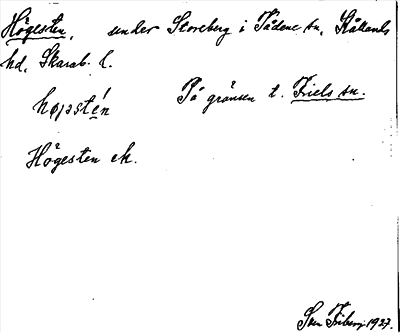 Högesten, under Storeberg i Tådene sn, Kållands
hd, Skarab. l.
högstén På gränsen t. Friels sn.
Högesten ek.
Sven Friberg 1927.